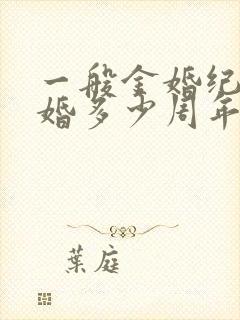 一般金婚纪
婚多少周年
葉庭